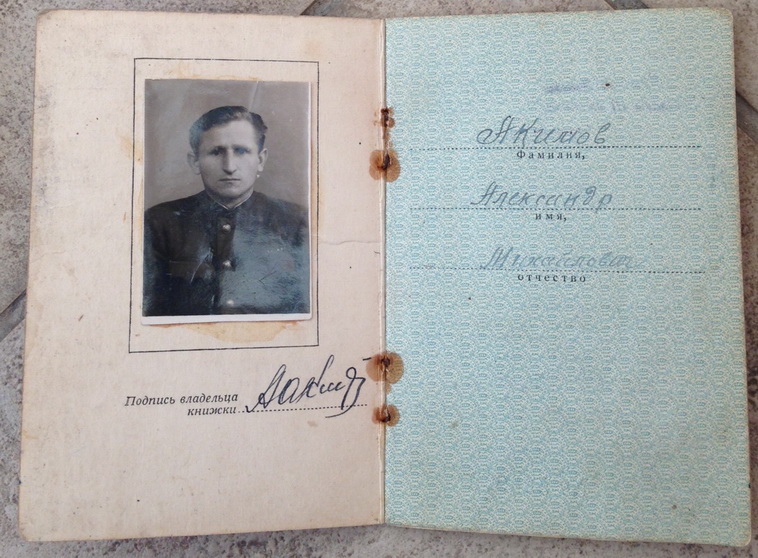 Подпись владельца
книжки
Акимов
Фамилия,
Александр
имя,
Михайлович
отчество